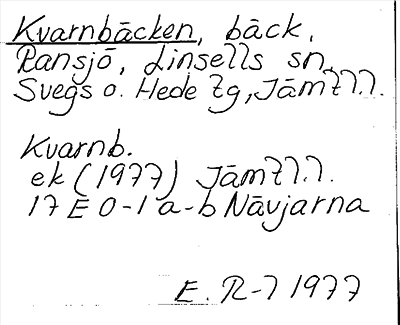 Kvarnbäcken, bäck,
Ransjö, Linsells sn,
Svegs o. Hede tg, Jämtl.l.
Kvarnb.
ek (1977) Jämtl.l.
17 E 0-1 a-b Nävjarna
E. R-l 1977